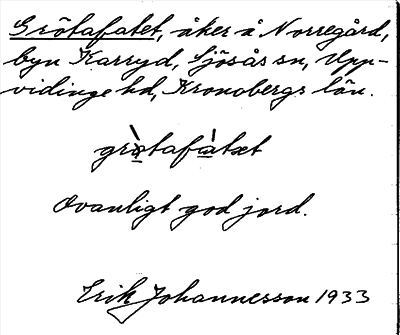 Grötafatet, åker å Norregård,
byn Karryd, Sjösås sn, Upp-
vidinge hd, Kronobergs län.
grø̀tafàtæt
Ovanligt god jord.
Erik Johannesson 1933